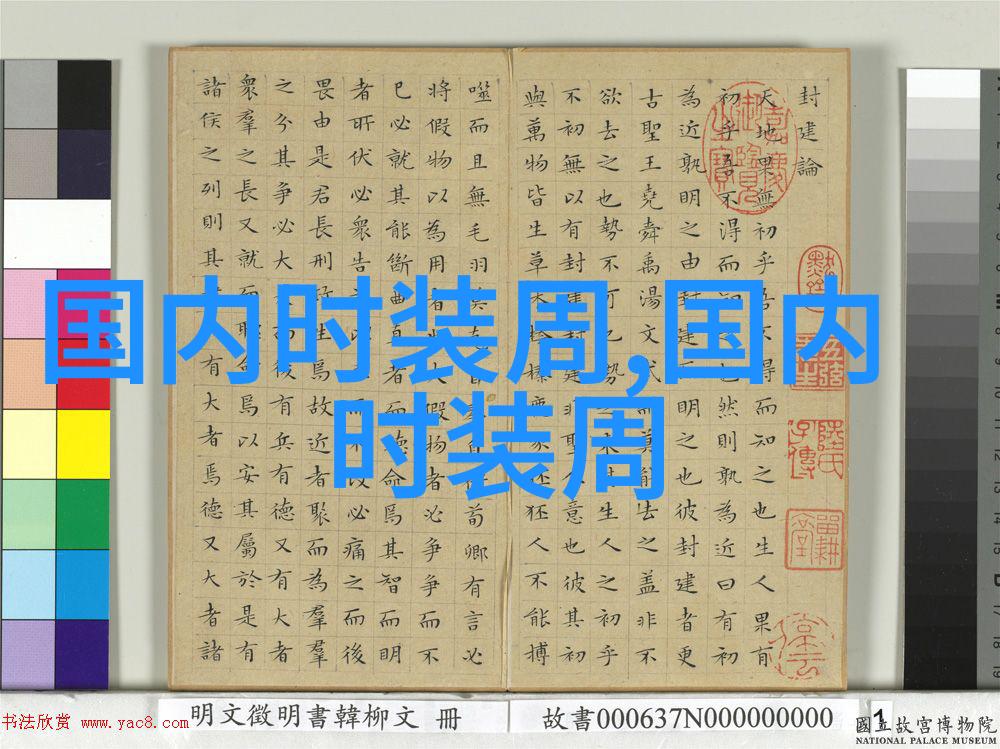 封建論
天地果無初乎吾不得而知之也生人果有
初乎吾不得而也然則孰為近曰有初
為近孰明之由封建而明之也彼封建者更
古聖王堯舜禹湯文武而莫去之蓋非不
欲去之也勢不可也勢之來生人之初乎
不初無以有封建封建非聖人意也彼其初
與萬物皆生草木榛榛鹿豕狉狉人不能搏
噬而且無毛羽莫克自荀卿有言必
將假物以為用者也夫假物者必爭爭而不
已必就其能斷曲直者而聽命焉其智而明
者所伏必衆告之以而不改必痛之而後
畏由是君長刑政生焉故近者聚而為羣
之分其爭必大而後有兵有德又有大者
衆羣之長又就而聽命焉以安其屬於是有
諸侯之列則其有大者焉德又大者諸
国内时装周,国内
时装周
明文徵明書韓柳文 冊
故書000637N000000000
1
书法欣赏 www.yac8.com
國立故宮博物院
NATIONAL PALACE MUSEUM